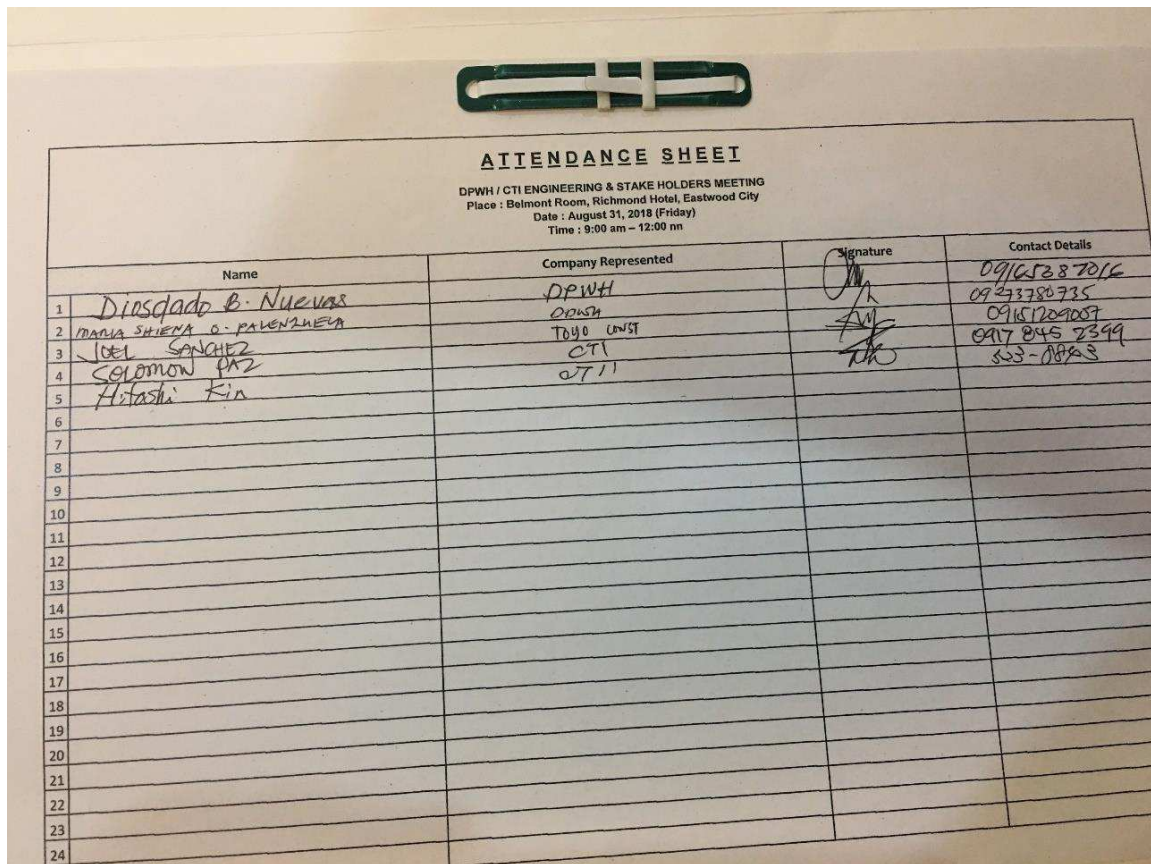 ATTENDANCE SHEET
DPWH / CTI ENGINEERING & STAKE HOLDERS MEETING
Place : Belmont Room, Richmond Hotel, Eastwood City
Date : August 31, 2018 (Friday)
Time : 9:00 am – 12:00 nn
Name Company Represented Signature Contact Details
1 Diosdado B. Nuevas DPWH 09165387016
2 MARIA SHIENA O. PALENZUELA DPWH 09273780735
3 JOEL SANCHEZ TOYO CONST 09151209007
4 SOLOMON PAZ CTI 0917 845 2399
5 Hitashi Kin
6
7
8
9
10
11
12
13
14
15
16
17
18
19
20
21
22
23
24